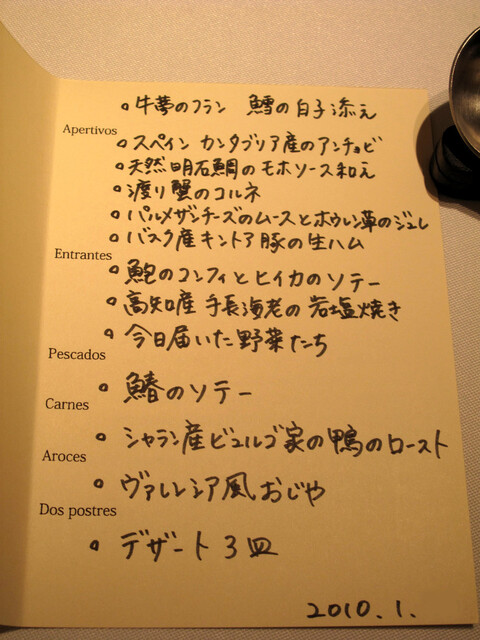 。牛蒡のフラン 鱈の白子添え
Apertivos
。スペイン カンタブリア産のアンチョビ
。天然明石鯛のモホソース和え
。渡り蟹のコルネ
。パルメザンチーズのムースとホウレン草のジュレ
。バスク産キントア豚の生ハム
Entrantes
。鮑のコンフィとヒイカのソテー
。高知産 手長海老の岩塩焼き
。今日届いた野菜たち
Pescados
。鰆のソテー
Carnes
。シャラン産ビュルゴ家の鴨のロースト
Aroces
。ヴァレンシア風おじや
Dos postres
。デザート3皿
2010.1.